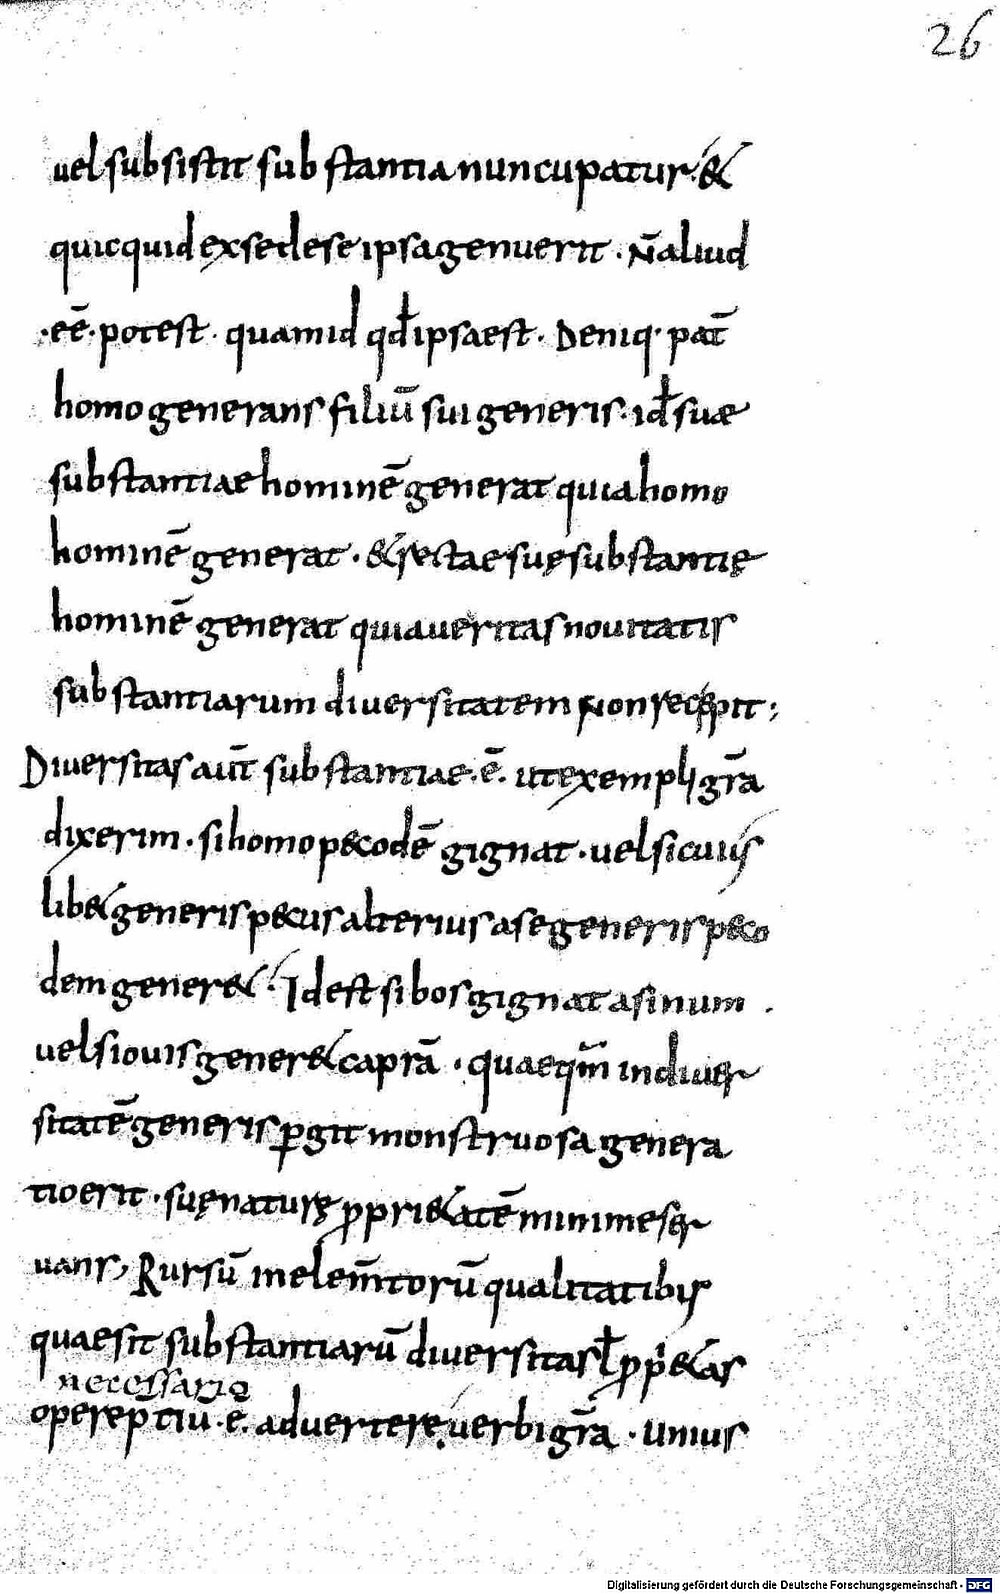 26
uel subsistit substantia nuncupatur. &
quicquid ex se de se ipsa genuerit. N̄ aliud
·eē· potest. quam id qđ ipsa est. Deniq· pat̄
homo generans filiū sui generis. idł suae
substantiae hominē generat quia homo
hominē generat. & rectae suę substantię
hominē generat quia ueritas nouitatis
substantiarum diuersitatem non recepit;
Diuersitas aūt substantiae. ē. ut exempli gr̄a
dixerim. si homo p&codē gignat. uel si cuius
lib& generis p&cus alterius a se generis p&co
dem gener&. Idest si bos gignat asinum.
uel si ouis gener& caprā. quaeqm̄ in diuer
sitatē generis ꝑgit monstruosa genera
tio erit. suę naturę ꝓpri&atē minime ser
uans, Rursū in elem̄torū qualitatibus
quae sit substantiarū diuersitas ł ꝓpri&as
necessario
opere p̄tiū. ē. aduertere uerbi gr̄a. unius
Digitalisierung gefördert durch die Deutsche Forschungsgemeinschaft - DFG